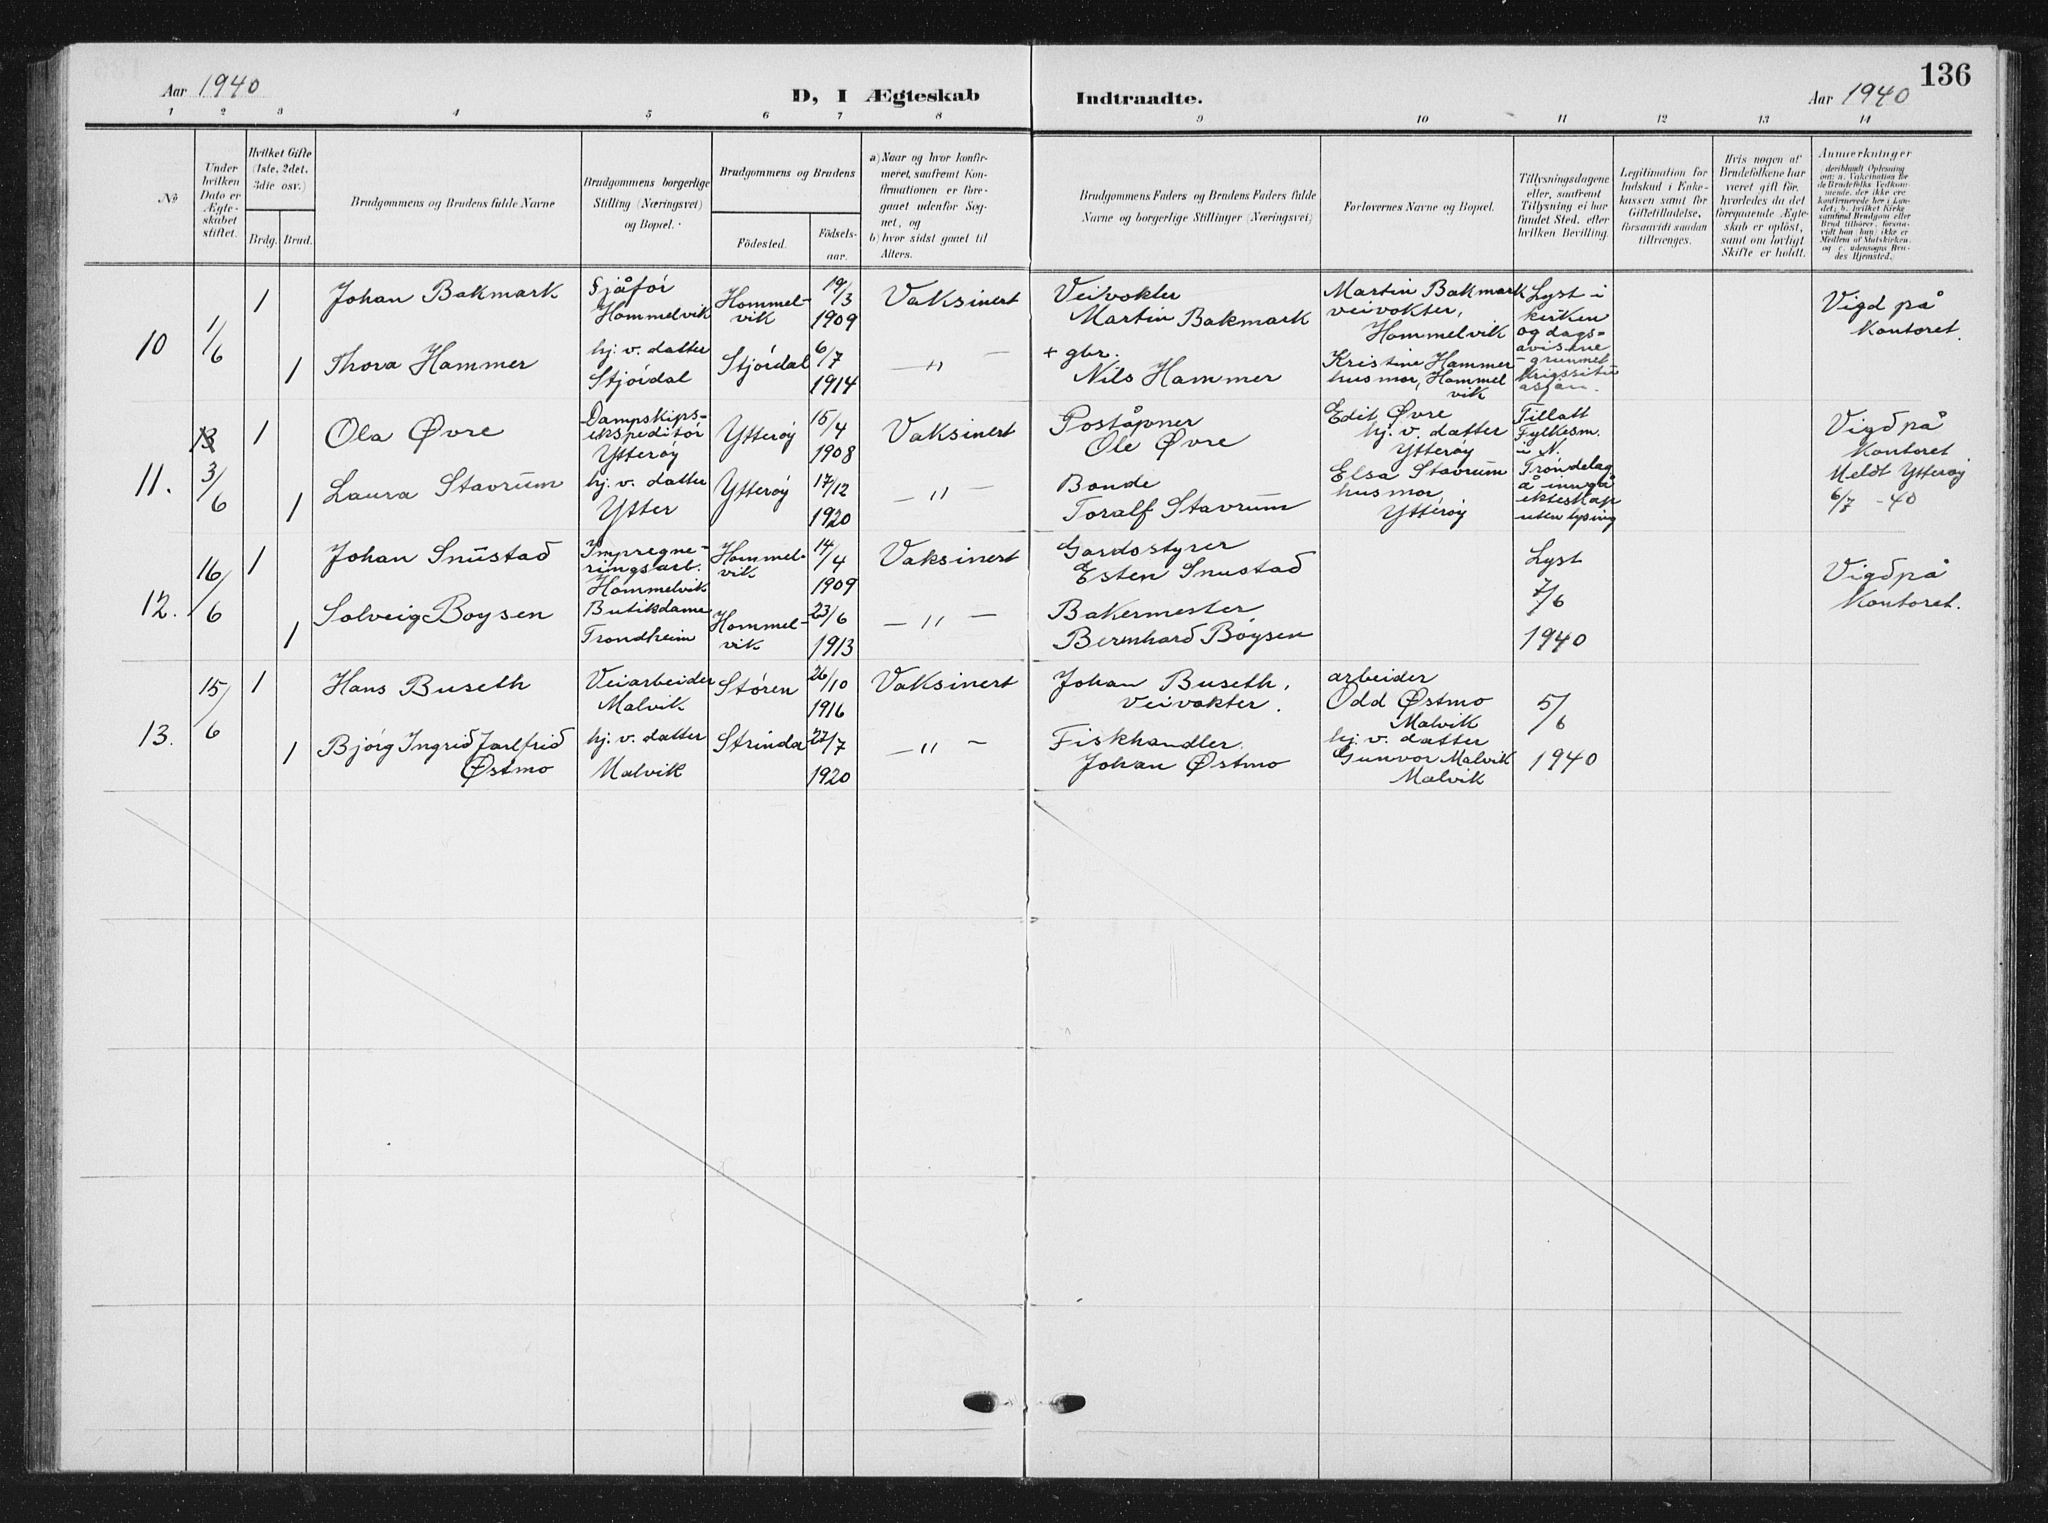 136
Aar 1940
D, I Ægteskab
Indtraadte.
Aar 1940
1 2 3 4 5 6 7 8 9 10 11 12 13 14
No
Under
hvilken
Dato er
Ægte-
skabet
stiftet.
Hvilket Gifte
(1ste, 2det,
3die osv.)
Brdg.
Brud.
Brudgommens og Brudens fulde Navne
Brudgommens borgerlige
Stilling (Næringsvei)
og Bopæl.
Brudgommens og Brudens
Födested.
Födsels-
aar.
a) Naar og hvor konfir-
meret, saafremt Kon-
firmationen er fore-
gaaet udenfor Sog-
net, og
b) hvor sidst gaaet til
Alters.
Brudgommens Faders og Brudens Faders fulde
Navne og borgerlige Stillinger (Næringsvei)
Forlovernes Navne og Bopæl.
Tillysningsdagene
eller, saafremt
Tillysning ei har
fundet Sted, efter
hvilken Bevilling.
Legitimation for
Indskud i Enke-
kassen samt for
Giftetilladelse,
forsaavidt saadan
tiltrænges.
Hvis nogen af
Brudefolkene har
været gift för,
hvorledes da det
foregaaende Ægte-
skab er oplöst,
samt om lovligt
Skifte er holdt.
Anmerkninger
(deriblandt Oplysning
om: a. Vaccination for
de Brudefolks Vedkom-
mende, der ikke ere
konfirmerede her i Lan-
det; b. hvilket Kirke-
samfund Brudgom eller
Brud tilhörer, forsaa-
vidt han (hun) ikke er
Medlem af Statskirken,
og c. udensogns Bru-
des Hjemsted.)
10
1/6
1
Johan Bakmark
Sjåför
Hommelvik
Hommel-
vik
19/3
1909
Vaksinert
Veivokter
Martin Bakmark
Martin Bakmark
veivokter,
Hommelvik
Lyst i
kirken
og dags-
avisene
grunnet
krigssitu
asjon.
Vigd på
Kontoret.
1
Thora Hammer
hj. v. datter
Stjördal
Stjördal
6/7
1914
— " —
+ gbr.
Nils Hammer
Kristine Hammer
husmor, Hommel
vik
11.
3/6
1
Ola Øvre
Dampskips-
ekspeditör
Ytteröy
Ytteröy
15/4
1908
Vaksinert
Poståpner
Ole Øvre
Edit Øvre
hj. v. datter
Ytteröy
Tillatt
Fylkesm.
i N.
Tröndelag
å inngå
ekteskap
uten lysing
Vigd på
Kontoret
Meldt Ytteröy
6/7 - 40
1
Laura Stavrum
hj. v. datter
Ytter
Ytteröy
17/12
1920
— " —
Bonde
Toralf Stavrum
Elsa Stavrum
husmor,
Ytteröy
12.
16/6
1
Johan Snustad
Impregne-
ringsarb.
Hommelvik
Hommel-
vik
14/4
1909
Vaksinert
Gardsstyrer
Esten Snustad
Lyst
7/6
1940
Vigd på
Kontoret.
1
Solveig Boysen
Butikdame
Trondheim
Hommel-
vik
23/6
1913
— " —
Bakermester
Bernhard Böysen
13.
15/6
1
Hans Buseth
Veiarbeider
Malvik
Stören
26/10
1916
Vaksinert
Johan Buseth,
Veivokter.
arbeider
Odd Østmo
Malvik
5/6
1940
1
Bjørg Ingrid Jarlfrid
Østmo
hj. v. datter
Malvik
Strinda
22/7
1920
— " —
Fiskhandler.
Johan Østmo
hj. v. datter
Gunvor Malvik
Malvik